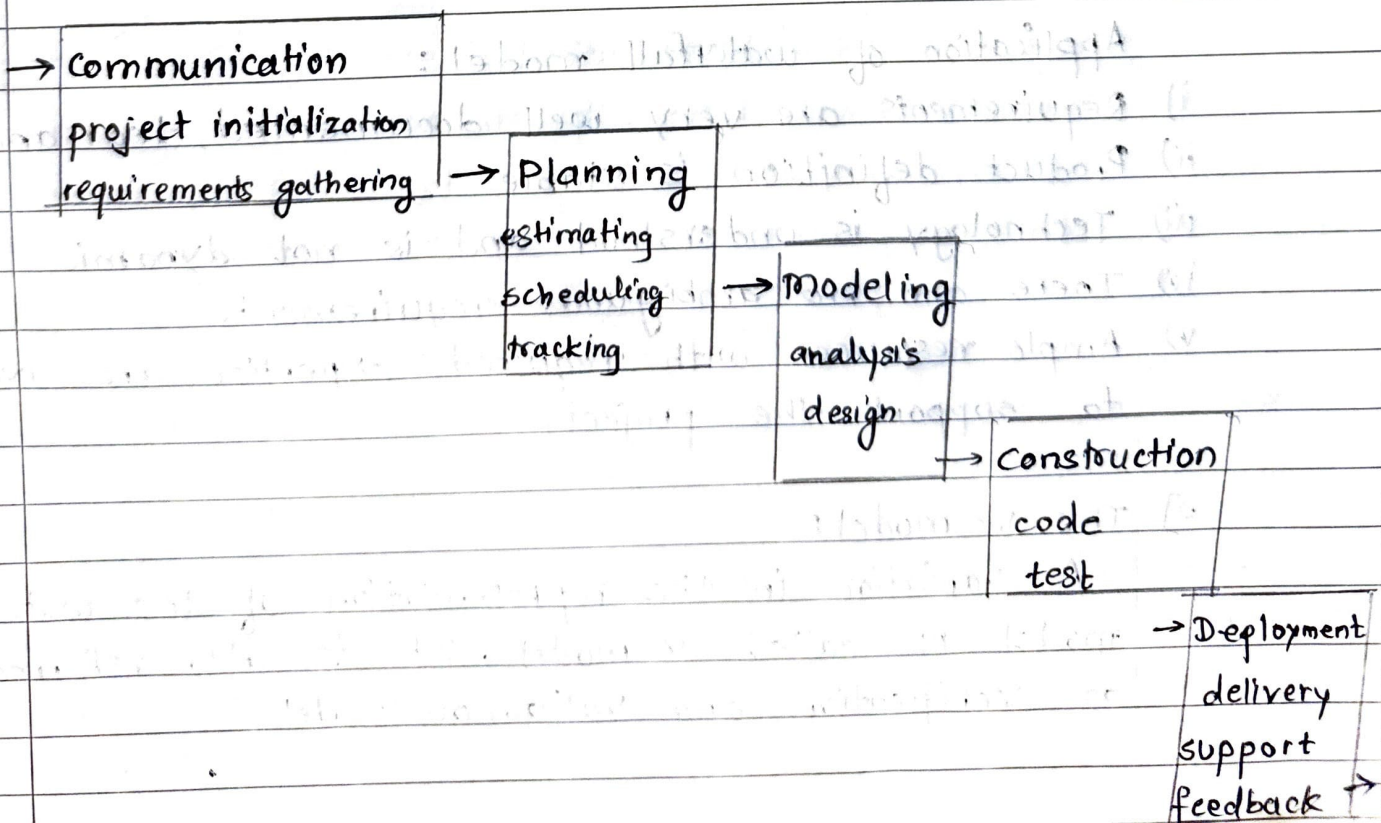 → Communication
project initialization
requirements gathering
→ Planning
estimating
scheduling
tracking
→ Modeling
analysis
design
→ Construction
code
test
→ Deployment
delivery
support
feedback →